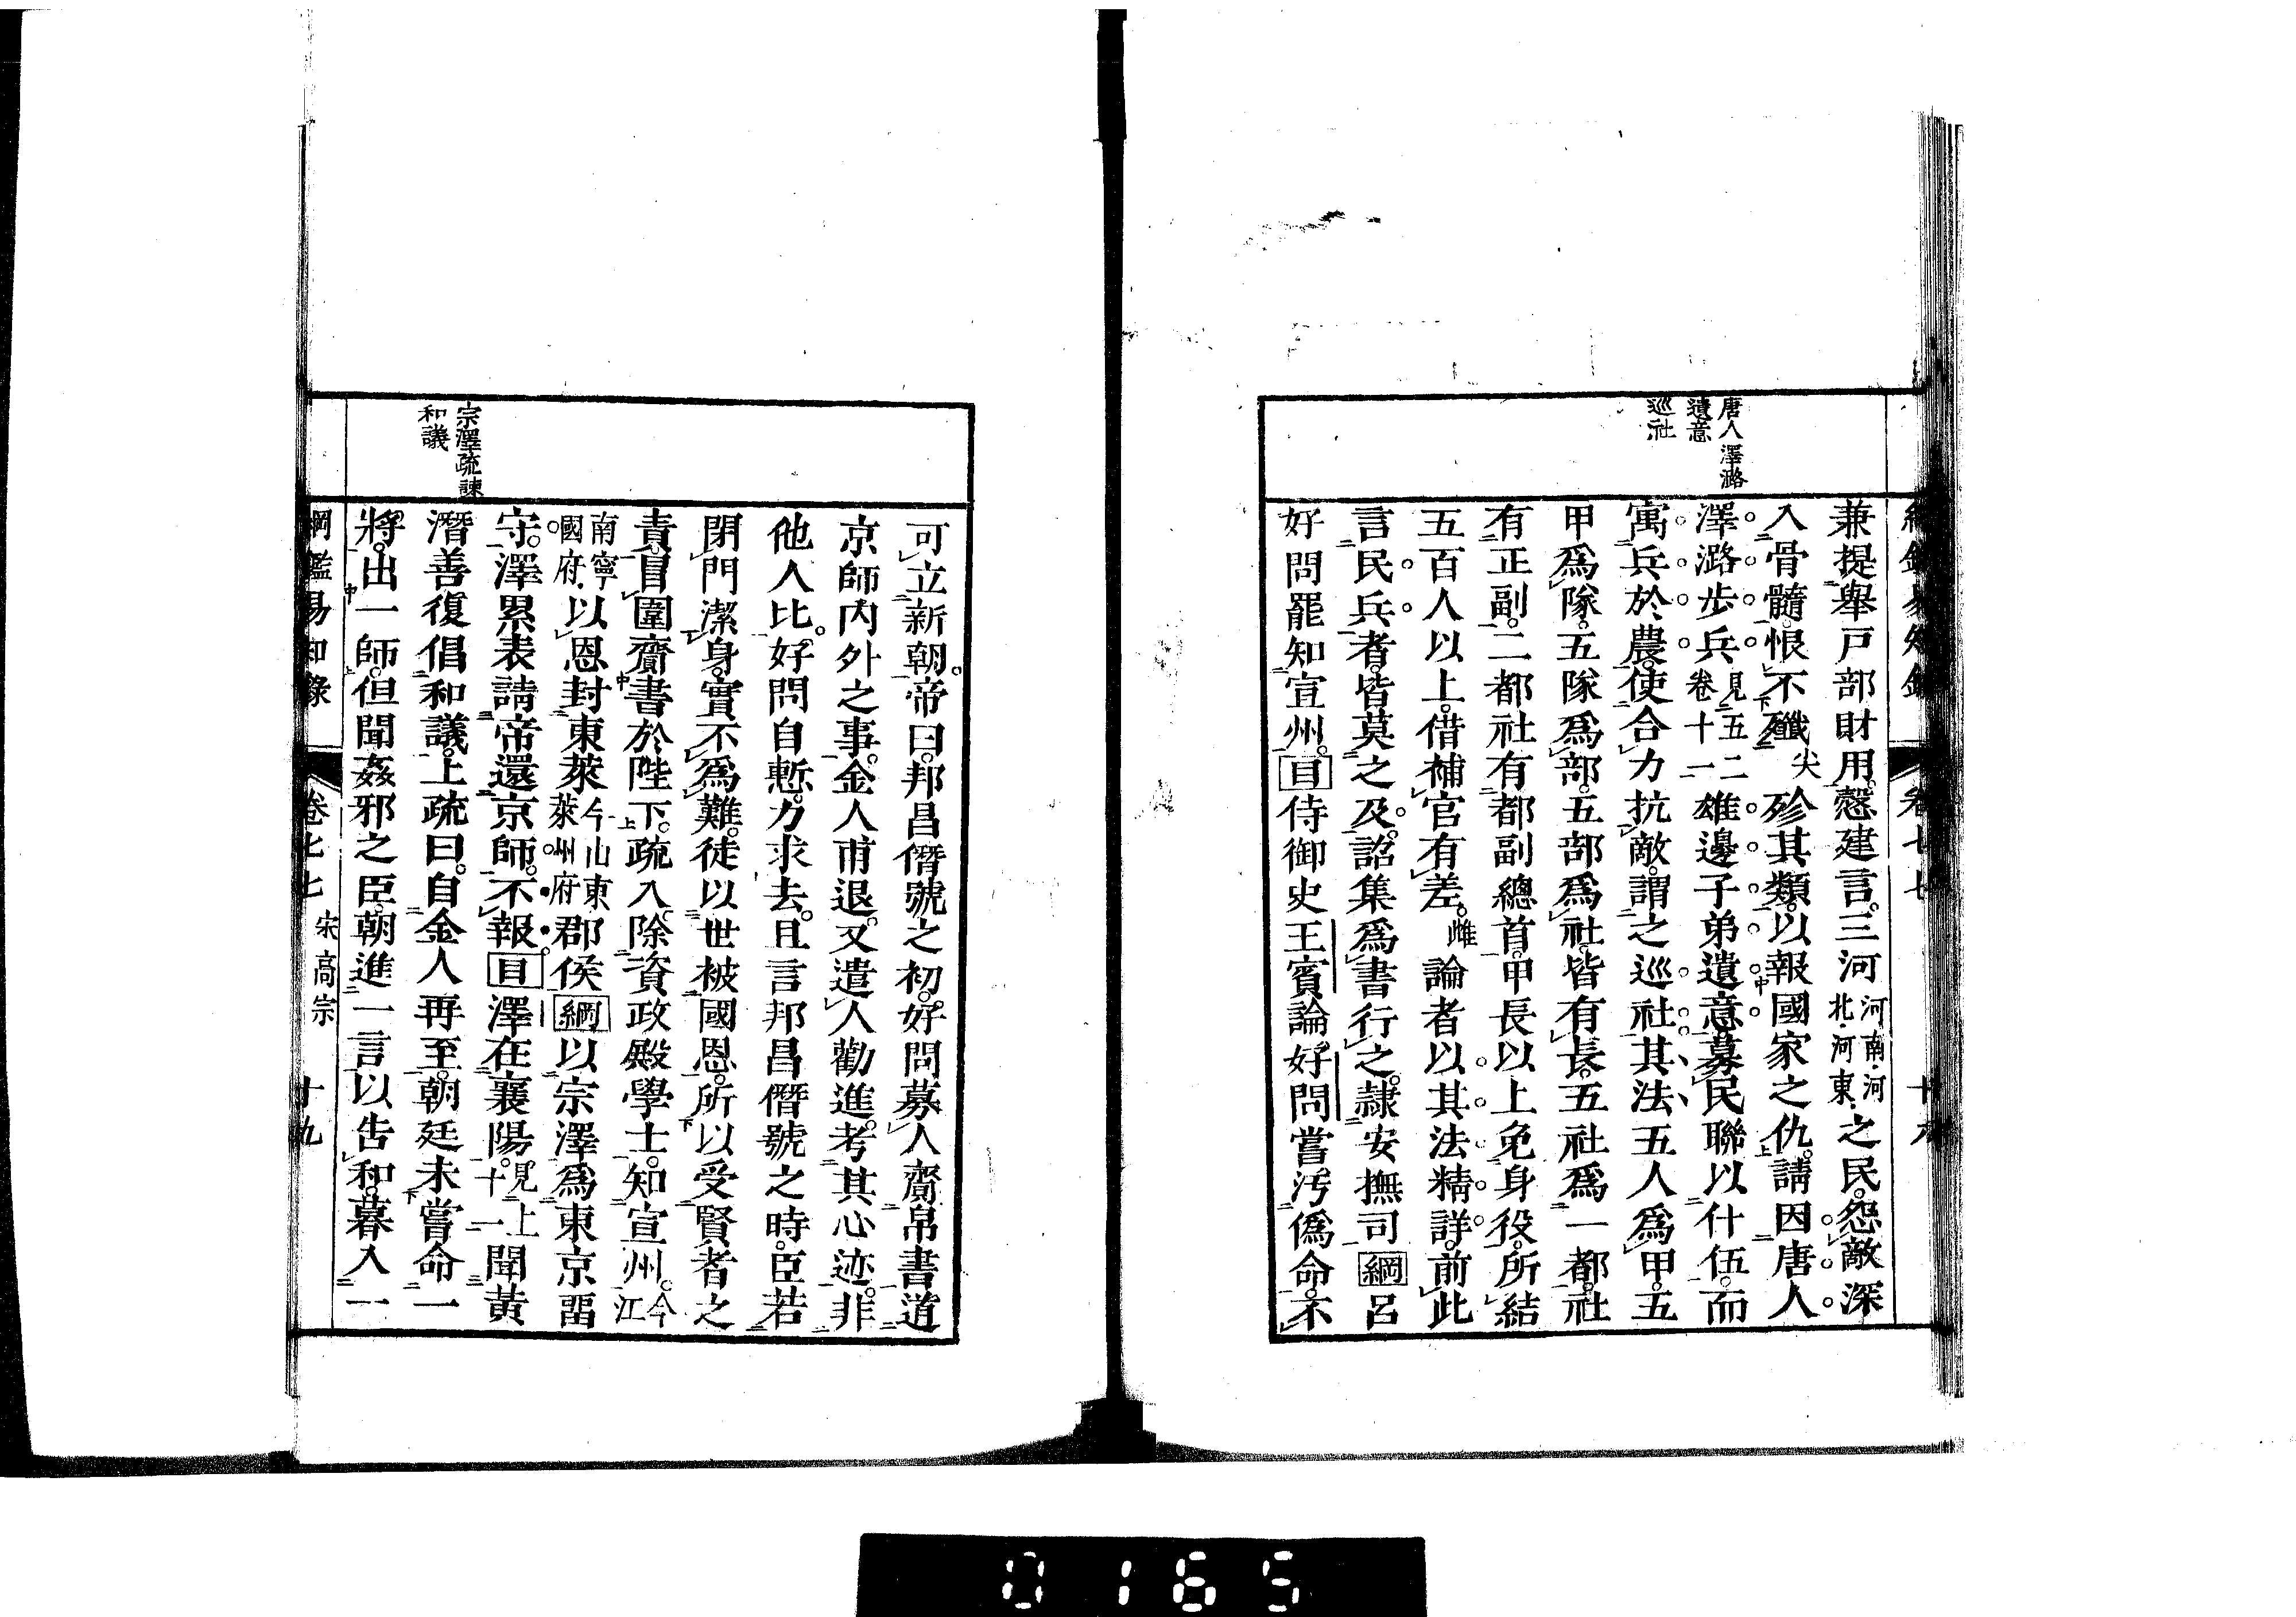 唐人澤潞
遺意
巡社
兼提舉戸部財用。愨建言。三河河南・河北・河東・之民。怨敵深
入骨髓。恨不殲尖殄其類。以報國家之仇。請因唐人
澤潞步兵見五二卷十一雄邊子弟遺意。募民聯以什伍。而
寓兵於農。使合力抗敵。謂之巡社。其法五人爲甲。五
甲爲隊。五隊爲部。五部爲社。皆有長。五社爲一都。社
有正副。二都社有都副總首。甲長以上免身役。所結
五百人以上。借補官有差。論者以其法精詳。前此
言民兵者。皆莫之及。詔集爲書行之。隷安撫司綱呂
好問罷知宣州。目侍御史王賓論好問嘗汚僞命。不
可立新朝。帝曰。邦昌僭號之初。好問募人齎帛書道
京師内外之事。金人甫退。又遣人勸進。考其心迹。非
他人比。好問自慙。力求去。且言邦昌僭號之時。臣若
閉門潔身。實不爲難。徒以世被國恩。所以受賢者之
責。冒圍齎書於陛下。疏入。除資政殿學士。知宣州。今江
南寧國府・以恩封東萊今山東萊州府郡侯綱以宗澤爲東京畱
守。澤累表請帝還京師。不報。目澤在襄陽。見上十一聞黄
潛善復倡和議。上疏曰。自金人再至。朝廷未嘗命一
將。出一師。但聞姦邪之臣。朝進一言以告和。暮入一
宗澤疏諫
和議
綱鑑易知錄 卷七七 宋高宗 十九